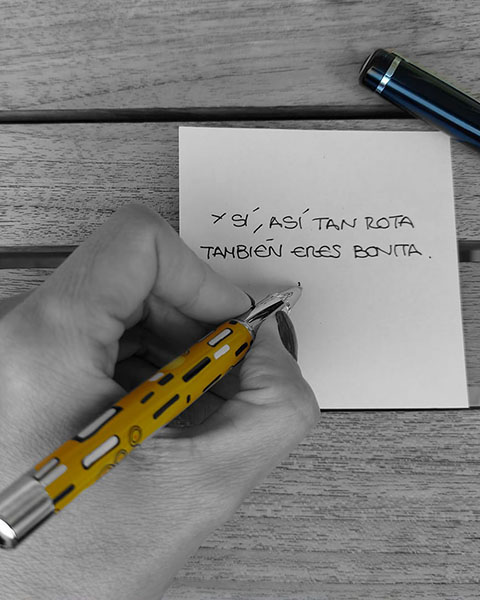 Y SÍ, ASÍ TAN ROTA
TAMBIÉN ERES BONITA.